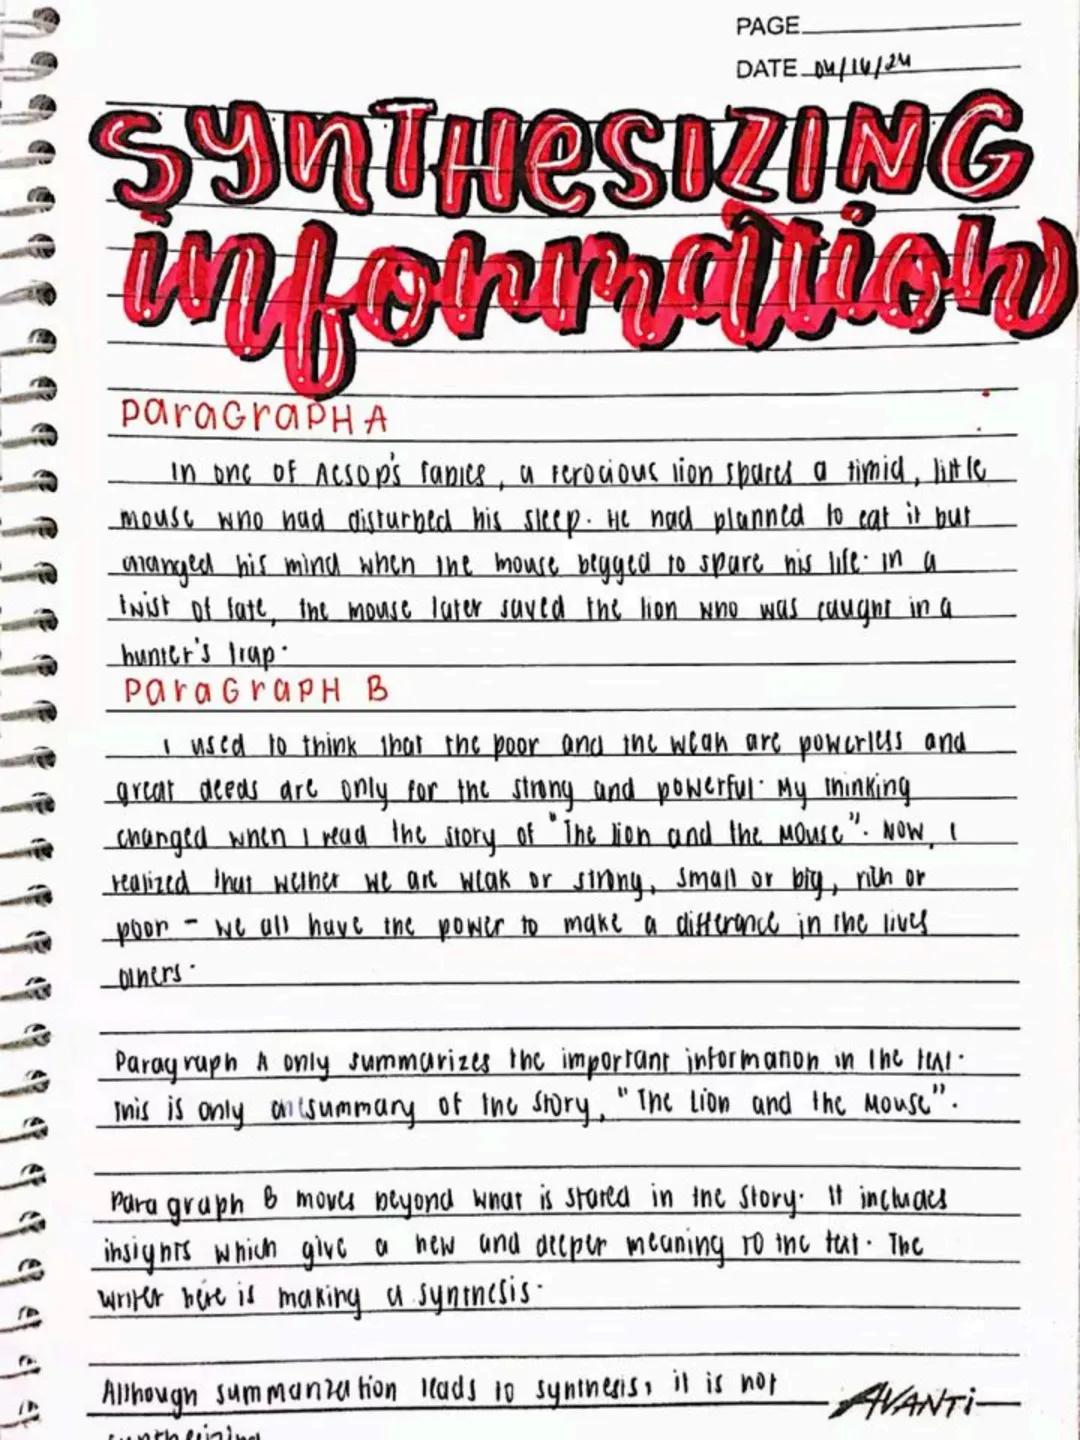 PAGE
DATE 04/16/24
SYNTHESIZING
information
Paragraph A
In one of Aesop's fables, a ferocious lion spares a timid, little
mouse who had disturbed his sleep. He had planned to eat it but
changed his mind when the mouse begged to spare his life. in a
twist of fate, the mouse later saved the lion who was caught in a
hunter's trap.
Paragraph B
I used to think that the poor and the weak are powerless and
great deeds are only for the strong and powerful. My thinking
changed when I read the story of "The lion and the Mouse". Now, I
realized that wether we are weak or strong, small or big, rich or
poor - we all have the power to make a difference in the lives
others.
Paragraph A only summarizes the important information in the text.
This is only a summary of the story, "The Lion and the Mouse".
Paragraph B moves beyond what is stated in the story. It includes
insights which give a new and deeper meaning to the text. The
writer here is making a synthesis.
Although summarization leads to synthesis, it is not
synthesizing
AVANTi